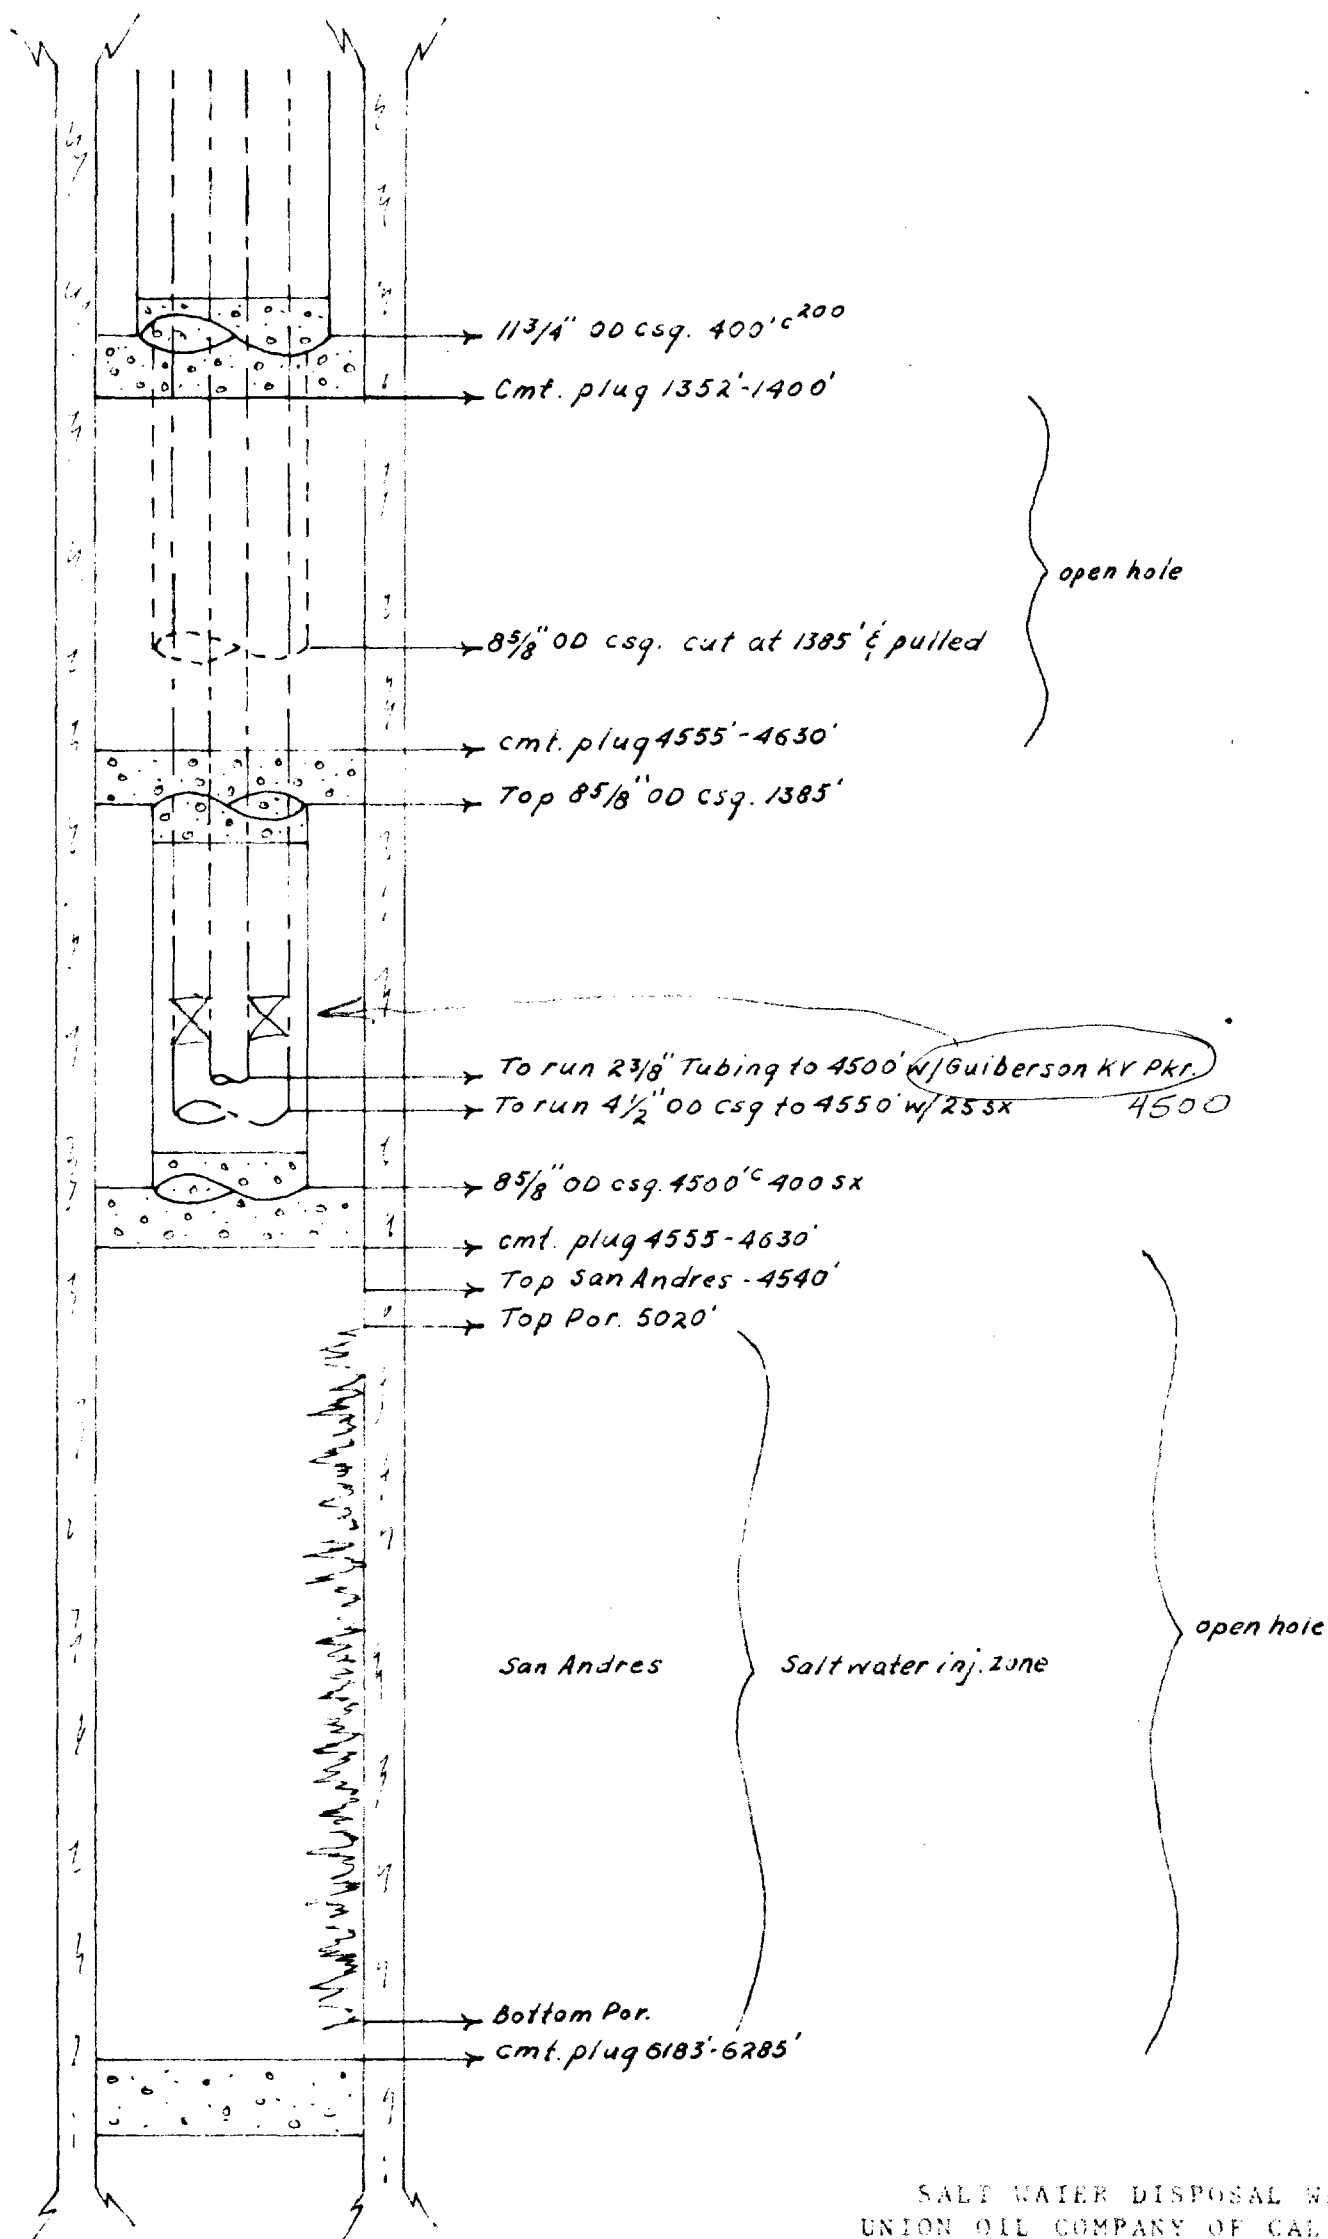 11 3/4" OD csg. 400' c 200
Cmt. plug 1352'-1400'
open hole
8 5/8" OD csg. cut at 1385' & pulled
cmt. plug 4555'-4630'
Top 8 5/8" OD csg. 1385'
To run 2 3/8" Tubing to 4500' w/Guiberson KV Pkr.
To run 4 1/2" OD csg to 4550' w/25 sx 4500
8 5/8" OD csg. 4500' c 400 sx
cmt. plug 4555-4630'
Top San Andres - 4540'
Top Por. 5020'
open hole
San Andres Saltwater inj. zone
Bottom Por.
cmt. plug 6183'-6285'
SALT WATER DISPOSAL
UNION OIL COMPANY OF CAL